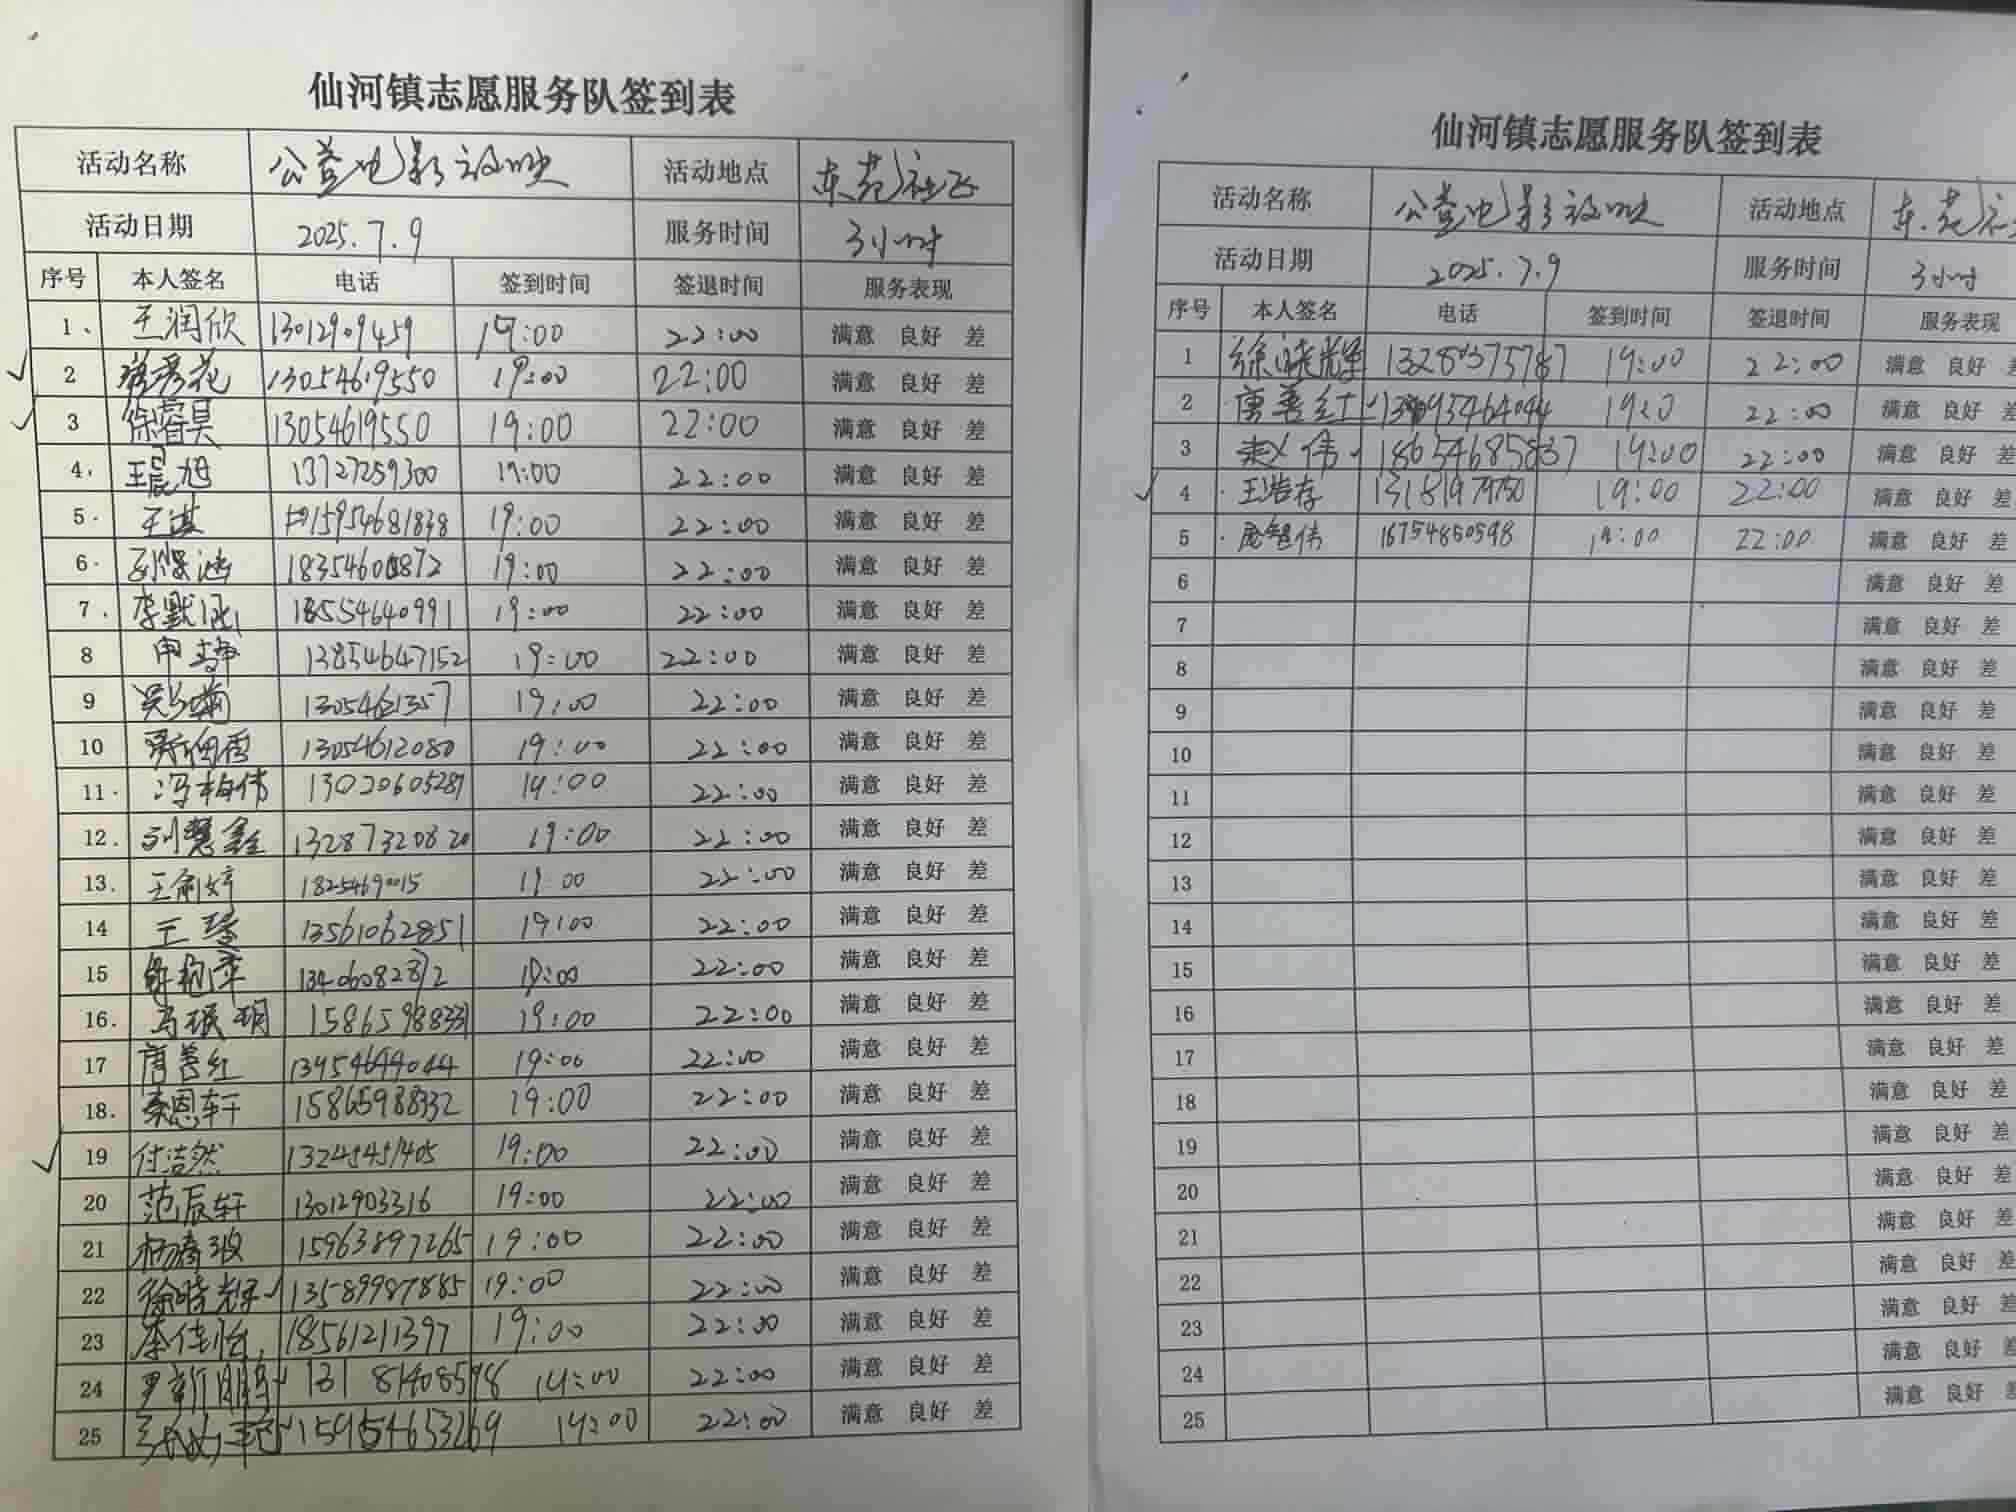 仙河镇志愿服务队签到表
活动名称 公益电影放映 活动地点 东苑社区
活动日期 2025.7.9 服务时间 3小时
序号 本人签名 电话 签到时间 签退时间 服务表现
1、 王润欣 13012909459 19:00 22:00 满意 良好 差
2 13054619550 19:00 22:00 满意 良好 差
3 徐睿具 13054619550 19:00 22:00 满意 良好 差
4. 王晨旭 13727259300 19:00 22:00 满意 良好 差
5. 王淇 15954681838 19:00 22:00 满意 良好 差
6. 19:00 22:00 满意 良好 差
7. 李默涵 18554640991 19:00 22:00 满意 良好 差
8 申 13854647152 19:00 22:00 满意 良好 差
9 1305461357 19:00 22:00 满意 良好 差
10 13054612080 19:00 22:00 满意 良好 差
11. 冯柏伟 13020605287 19:00 22:00 满意 良好 差
12. 刘慧鑫 13287320820 19:00 22:00 满意 良好 差
13. 王俞婷 18254690015 19 00 22:00 满意 良好 差
14 王琴 13561062851 19:00 22:00 满意 良好 差
15 19:00 22:00 满意 良好 差
16. 马珉玥 19:00 22:00 满意 良好 差
17 唐善红 19:00 22:00 满意 良好 差
18. 秦恩轩 15865988332 19:00 22:00 满意 良好 差
19 付洁然 13245451405 19:00 22:00 满意 良好 差
20 范辰轩 13012903316 19:00 22:00 满意 良好 差
21 15963897265 19:00 22:00 满意 良好 差
22 徐晓辉 13589987885 19:00 22:00 满意 良好 差
23 李佳怡 18561211397 19:00 22:00 满意 良好 差
24 罗新明 19:00 22:00 满意 良好 差
25 19:00 22:00 满意 良好 差
仙河镇志愿服务队签到表
活动名称 公益电影放映 活动地点 东苑社
活动日期 2025.7.9 服务时间 3小时
序号 本人签名 电话 签到时间 签退时间 服务表现
1 徐晓辉 13280375787 19:00 22:00 满意 良好 差
2 唐善红 22:00 满意 良好 差
3 赵伟 18654685837 19:00 22:00 满意 良好 差
4 王浩存 13181979750 19:00 22:00 满意 良好 差
5 庞智伟 16754860598 19:00 22:00 满意 良好 差
6 满意 良好 差
7 满意 良好 差
8 满意 良好 差
9 满意 良好 差
10 满意 良好 差
11 满意 良好 差
12 满意 良好 差
13 满意 良好 差
14 满意 良好 差
15 满意 良好 差
16 满意 良好 差
17 满意 良好 差
18 满意 良好 差
19 满意 良好 差
20 满意 良好 差
21 满意 良好 差
22 满意 良好 差
23 满意 良好 差
24 满意 良好 差
25 满意 良好 差